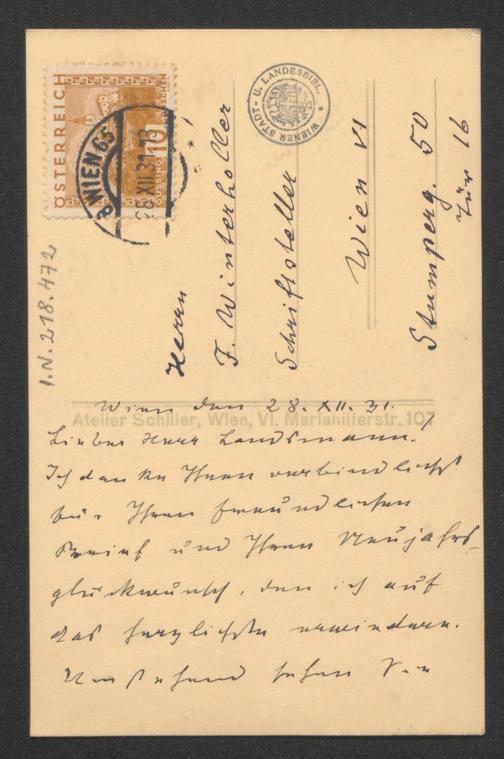 ÖSTERREICH
10
GROSCHEN
GÜSSING
WIEN 65
28 XII 31
WIENER STADT- U. LANDESBIBL.
I.N. 218.472
Herrn
F. Winterholler
Schriftsteller
Wien VI
Stumperg. 50
Tür 16
Atelier Schiller, Wien, VI. Mariahilferstr. 107
Wien den 28. XII. 31.
Lieber Herr Landsmann.
Ich danke Ihnen verbindlichst
für Ihren freundlichen
Brief und Ihren Neujahrs-
glückwunsch, den ich auf
das herzlichste erwidere.
Umstehend sehen Sie